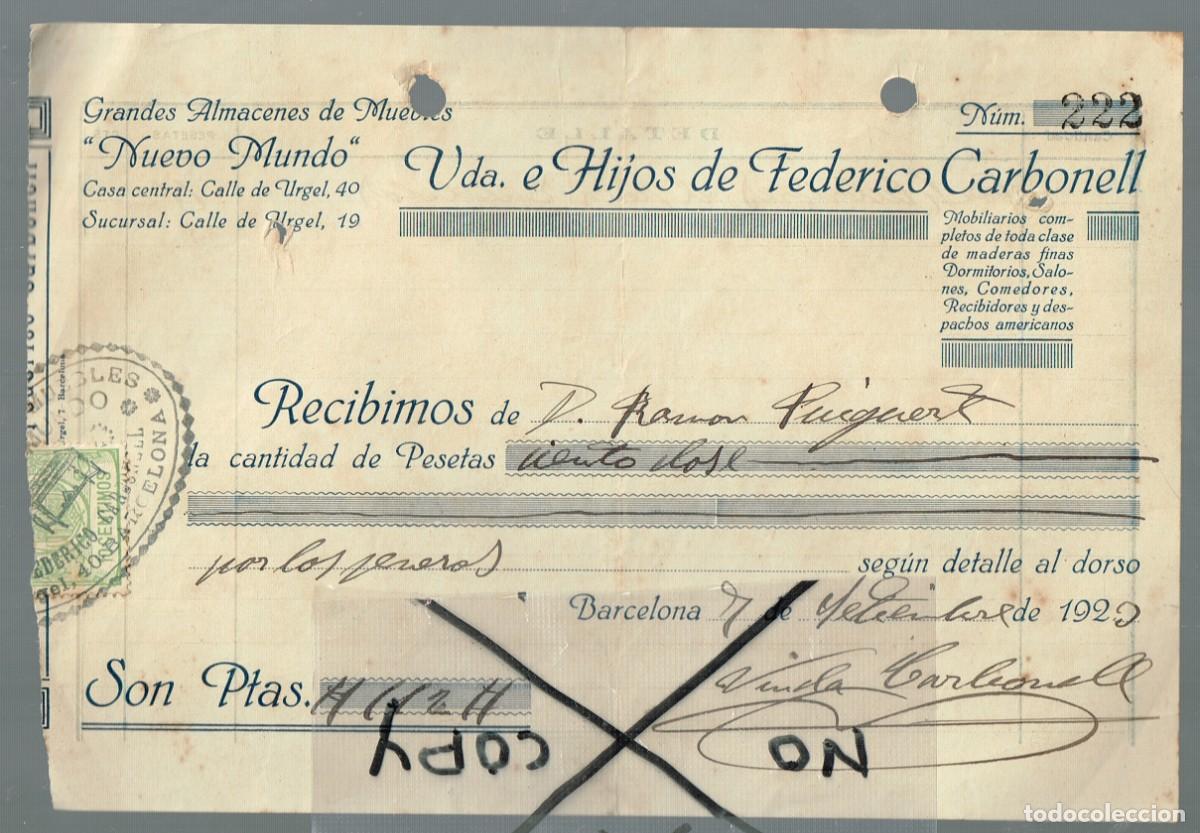 Grandes Almacenes de Muebles
"Nuevo Mundo"
Casa central: Calle de Urgel, 40
Sucursal: Calle de Urgel, 19
Núm. 222
Vda. e Hijos de Federico Carbonell
Mobiliarios com-
pletos de toda clase
de maderas finas
Dormitorios, Salo-
nes, Comedores,
Recibidores y des-
pachos americanos
DETALLE
Recibimos de D. Ramon Puiguert
la cantidad de Pesetas ciento dose
por los jeneros según detalle al dorso
Barcelona 7 de Setiembre de 1923
Son Ptas. #112#
Viuda Carbonell
NO COPY
Federico Carbonell
Urgel, 7 Barcelona
MUEBLES
BARCELONA
FEDERICO
CÉNTIMOS
todocoleccion